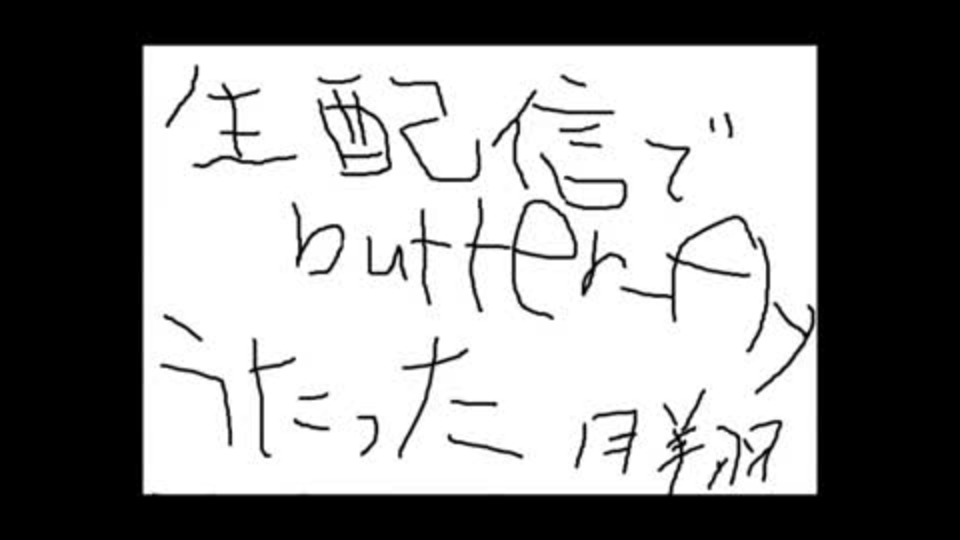 生配信で
butter-fly
うたった
月翔